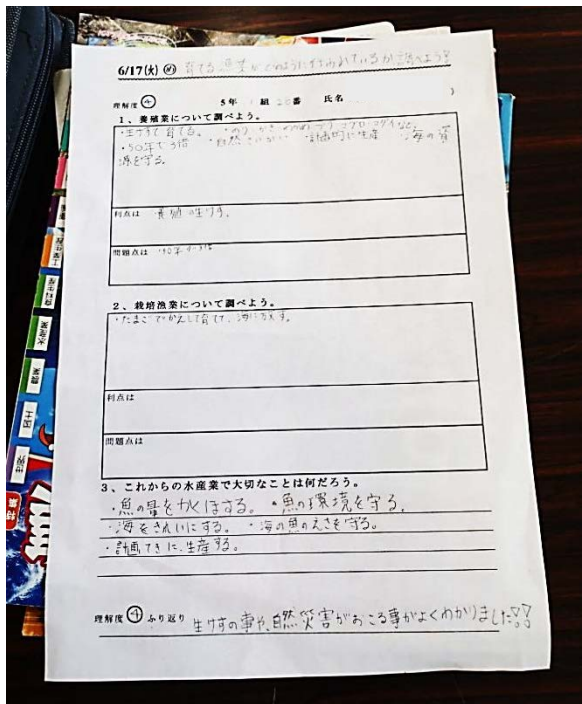 6/17(火) め 育てる漁業がどのように行われているか調べよう。
理解度 ④ 5年 組 番 氏名
1、養殖業について調べよう。
・生けすで育てる。 ・のり・かき・わかめ・ブリ・クロマグロ・マダイなど
・50年で3倍 ・自然さいがい ・計画的に生産 ・海の資
源を守る。
利点は ・養殖の生けす。
問題点は ・50年で3倍
2、栽培漁業について調べよう。
・たまごでかえして育てて、海に放す。
利点は
問題点は
3、これからの水産業で大切なことは何だろう。
・魚の量をかくほする。 ・魚の環境を守る。
・海をきれいにする。 ・海の魚のえさを守る。
・計画てきに、生産する。
理解度 ④ ふり返り 生けすの事や、自然災害がおこる事がよくわかりました!!
世界
土国
農業
水産業
食料生産
工業生産
特集